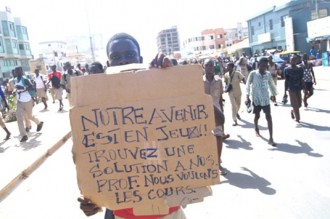 NOTRE AVENIR
EST EN JEU!!!
TROUVEZ UNE
SOLUTION A NOS
PROF. NOUS VOULONS
LES COURS.